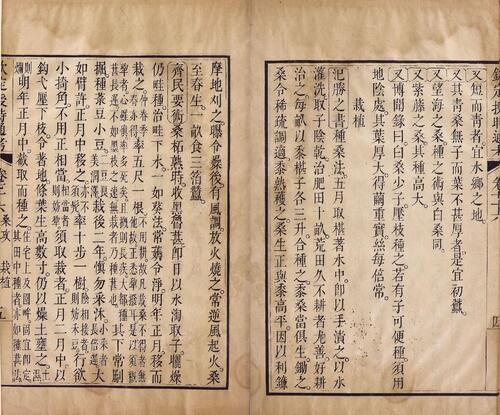 又短而青者宜水鄉之地
又其青桑無子而葉不甚厚者是宜初蠶
又望海之桑種之術與白桑同
又紫藤之桑其種高大
又博聞錄曰白桑少子壓枝種之若有子可便種須用
地陰處其葉厚大得繭重實絲每倍常
栽植
氾勝之書種桑法五月取椹著水中即以手漬之以水
灌洗取子陰乾治肥田十畝荒田久不耕者尤善好耕
治之每畝以黍椹子各三升合種之黍桑當俱生鋤之
桑令稀疏調適黍熟穫之桑生正與黍高平因以利鐮
摩地刈之曝令燥後有風調放火燒之常逆風起火桑
至春生一畝食三箔蠶
齊民要術桑柘熟時收黑魯椹即日以水淘取子曬燥
仍畦種治畦下水一如葵法常薅令淨明年正月移而
栽之仲春季春亦得率五尺一根
其下常斸
掘種菉豆小豆二豆良美潤澤益桑栽後二年慎勿采沐小采者長倍遲大
如臂許正月中移之亦不須髡率十步一樹陰相接者則妨禾豆行欲
小掎角不用正相當相當者則妨犁須取栽者正月二月中以
鈎弋壓下枝令著地條葉生高數寸仍以燥土壅之土濕
則爛明年正月中截取而種之住宅上及園畔固宜即定其田中種者亦如種椹法
欽定授時通考 卷三十六 桑政 栽植 五